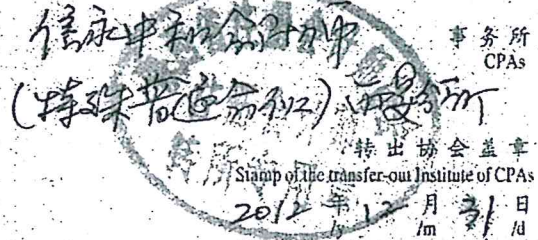 信永中和会计师 事务所
CPAs
(特殊普通合伙) 分所
转出协会盖章
Stamp of the transfer-out Institute of CPAs
2012 年 12 月 31 日
/y /m /d